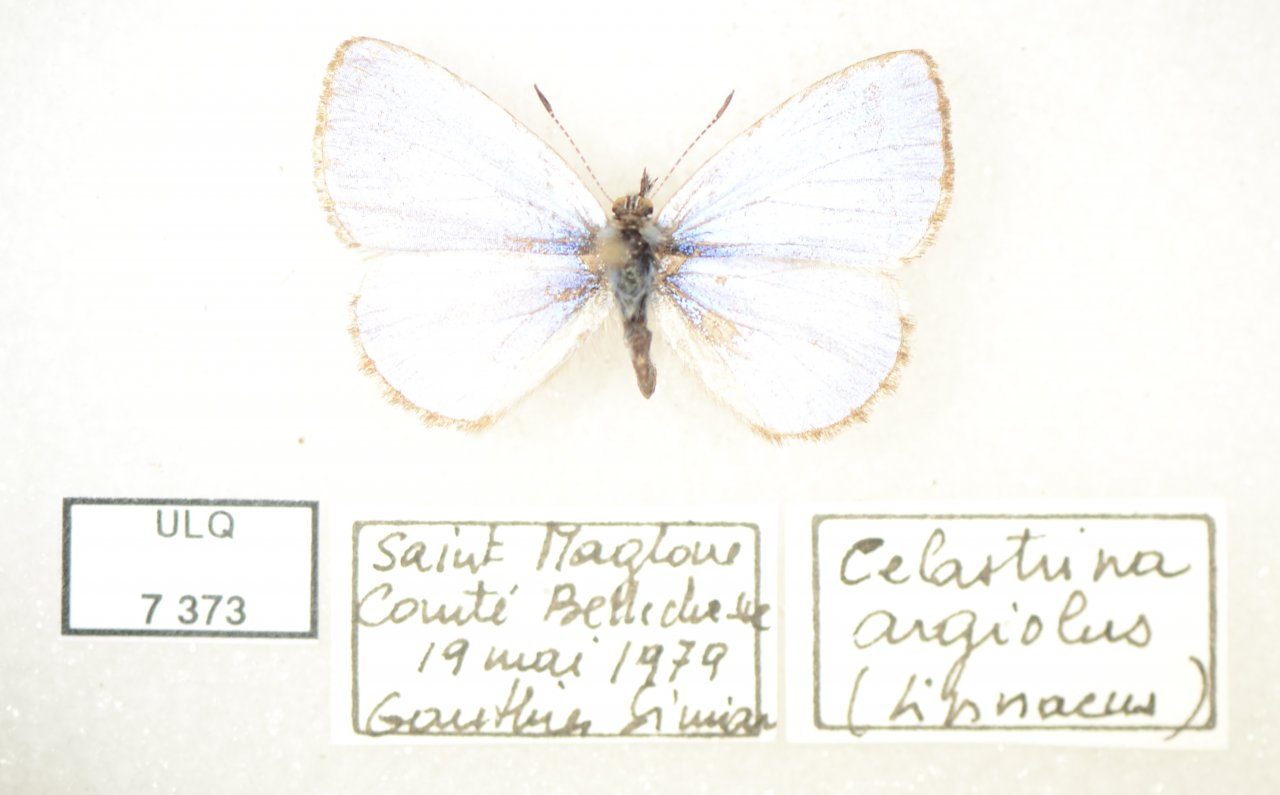 ULQ
7 373
Saint Magloire
Comté Bellechasse
19 mai 1979
Gauthier Simian
Celastrina
argiolus
(Linnaeus)